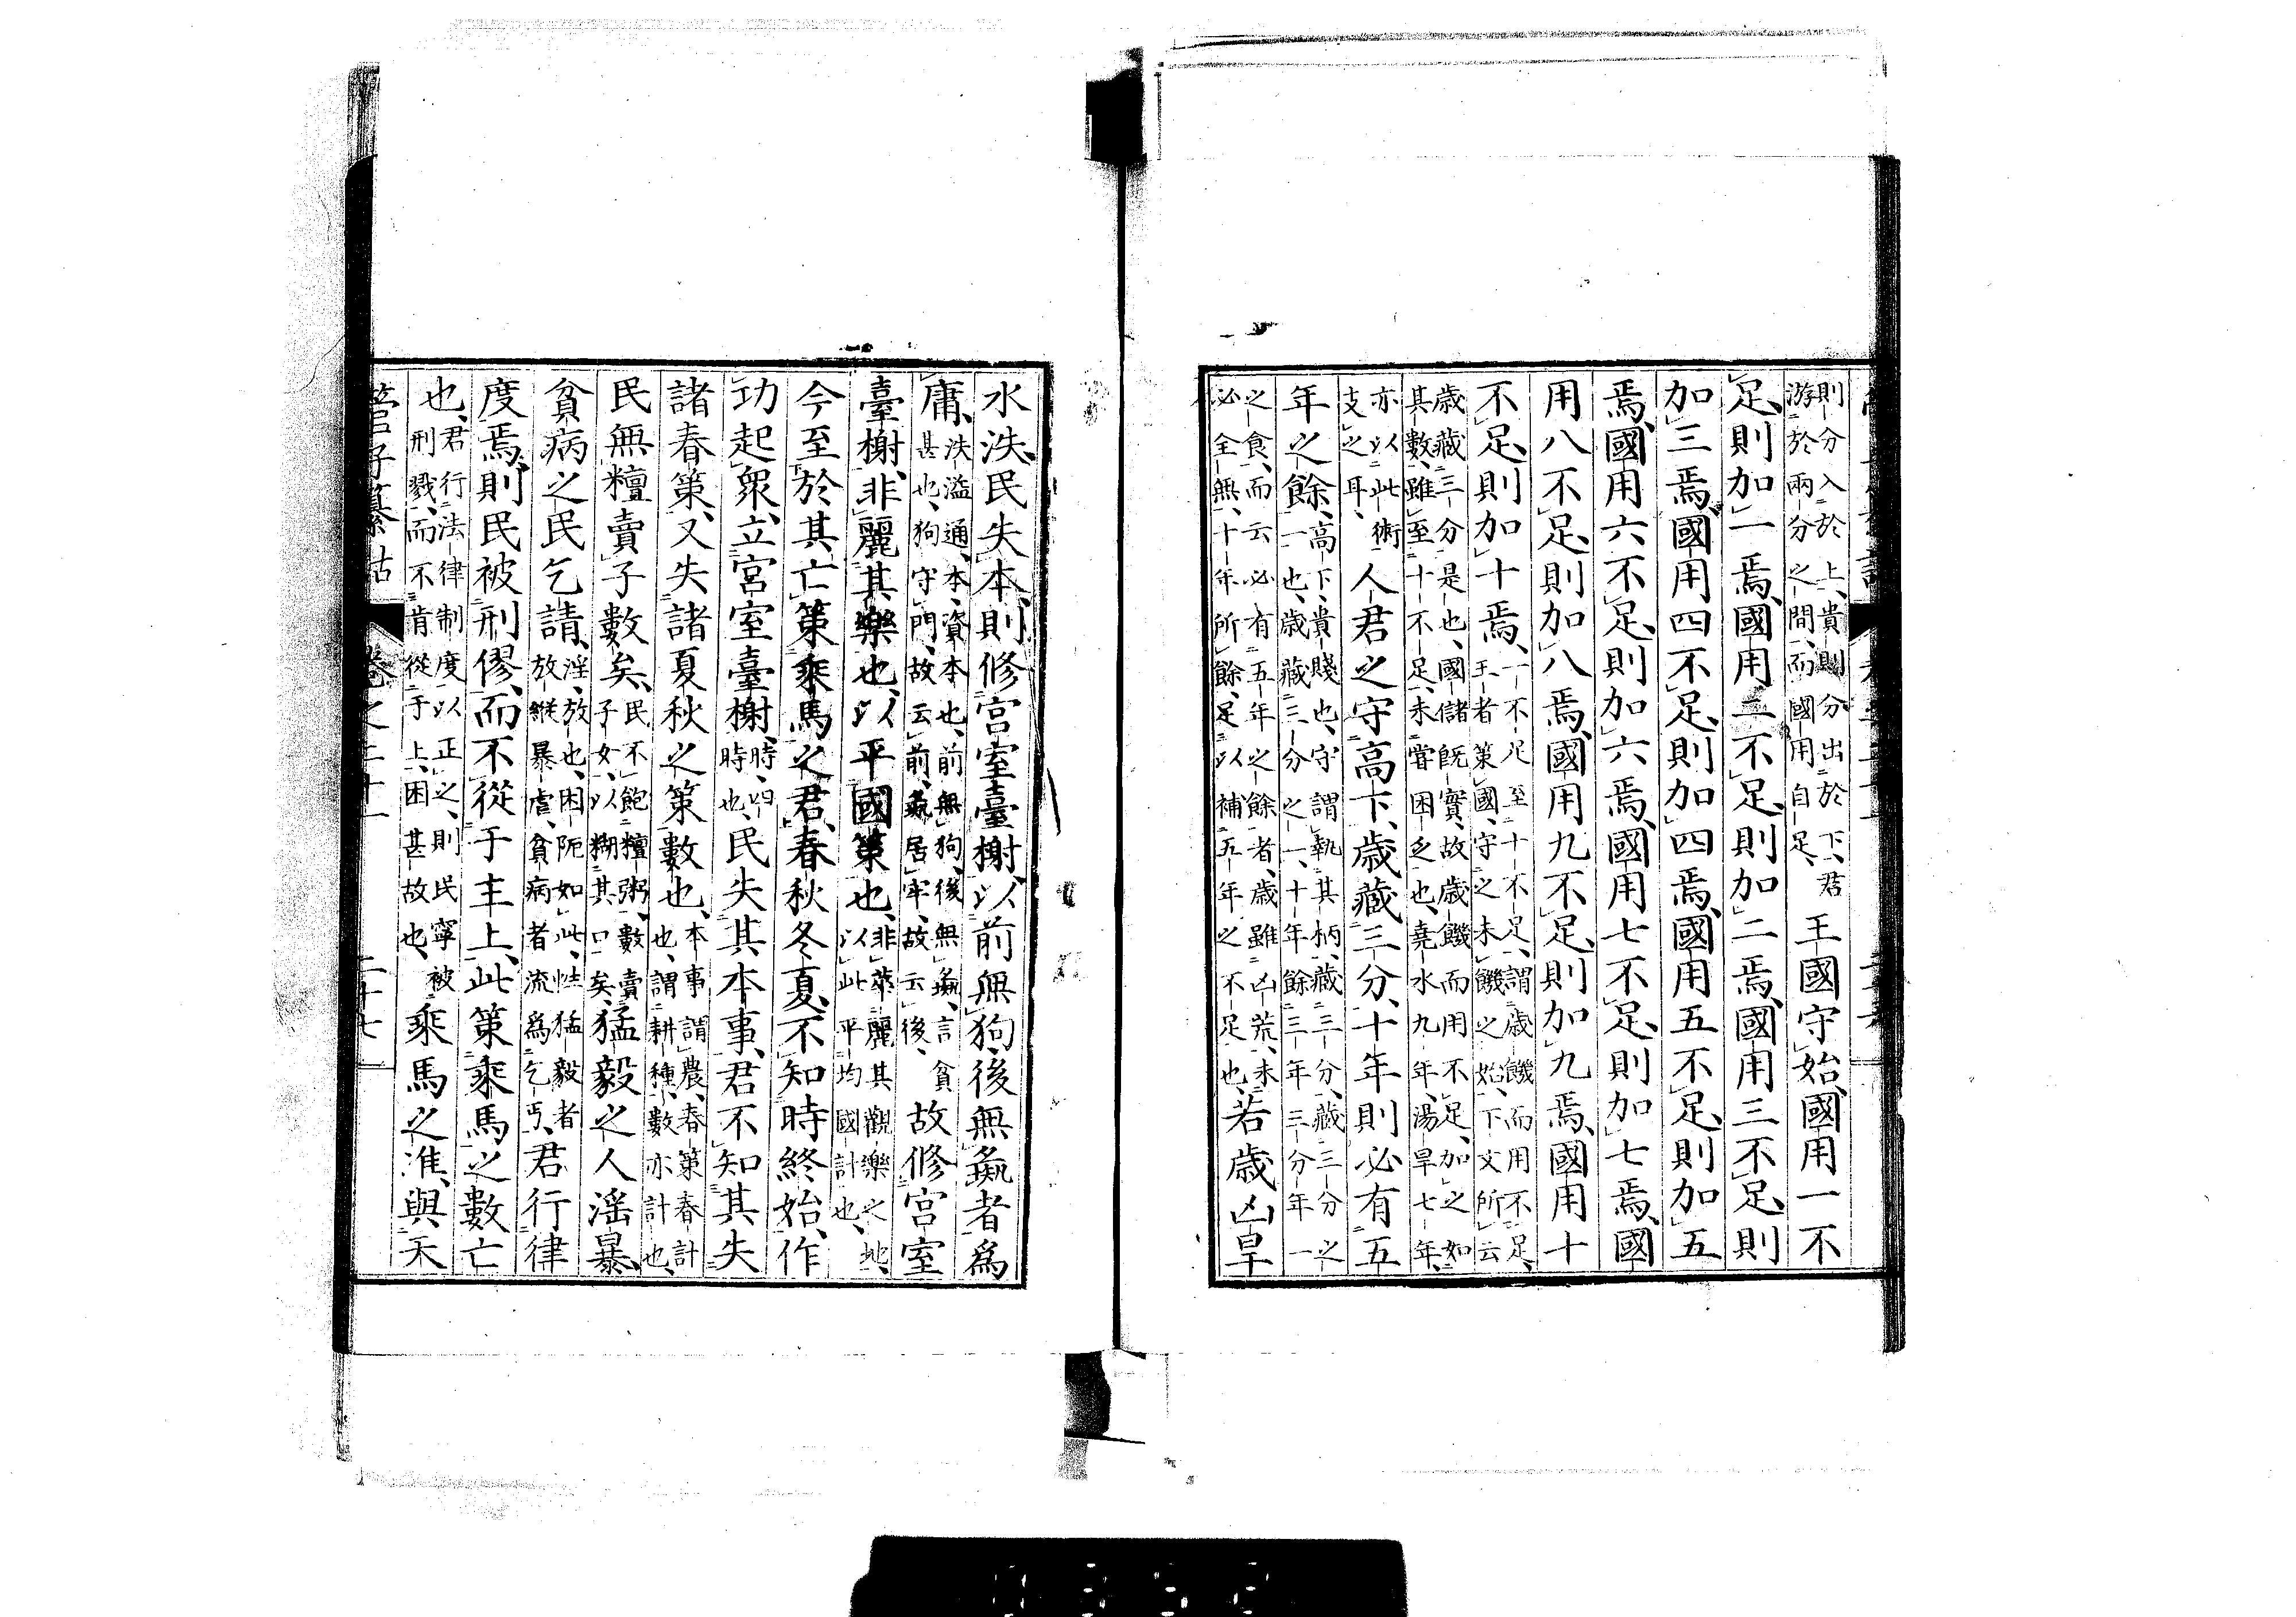 則分入於上、貴則分出於下、君
游於兩分之間、而國用自足、王國守始、國用一不
足、則加一焉、國用二不足、則加二焉、國用三不足、則
加三焉、國用四不足、則加四焉、國用五不足、則加五
焉、國用六不足、則加六焉、國用七不足、則加七焉、國
用八不足、則加八焉、國用九不足、則加九焉、國用十
不足、則加十焉、一不足至十不足、謂歲饑而用不足、
王者策國、守之未饑之始、下文所云
歲藏三分是也、國儲既實、故歲饑而用不足、加之如
其數、雖至十不足、未嘗困乏也、堯水九年、湯旱七年、
亦以此術
支之耳、人君之守高下、歲藏三分、十年則必有五
年之餘、高下、貴賤也、守謂執其柄、藏三分、藏三分之
一也、歲藏三分之一、十年餘三年三分年一
之食、而云必有五年之餘者、歲雖凶荒、未
必全無、十年所餘、足以補五年之不足也、若歲凶旱
水泆、民失本、則修宮室臺榭、以前無狗、後無彘者爲
庸、泆溢通、本、資本也、前無狗、後無彘、言貧
甚也、狗守門、故云前、彘居牢、故云後、故修宮室
臺榭、非麗其樂也、以平國策也、非華麗其觀樂之地、
以此平均國計也、
今至於其亡策乘馬之君、春秋冬夏、不知時終始、作
功起衆、立宮室臺榭、時、四
時也、民失其本事、君不知其失
諸春策、又失諸夏秋之策數也、本事謂農、春策春計
也、謂耕種、數亦計也、
民無糧賣子數矣、民不飽糧粥、數賣
子女、以糊其口矣、猛毅之人淫暴、
貧病之民乞請、淫、放也、困阨如此、性猛毅者
放縱暴虐、貧病者流爲乞丐、君行律
度焉、則民被刑僇、而不從于主上、此策乘馬之數亡
也、君行法律制度以正之、則民寧被
刑戮、而不肯從于上、困甚故也、乘馬之準、與天
管子纂詁 卷之二十一 二十七